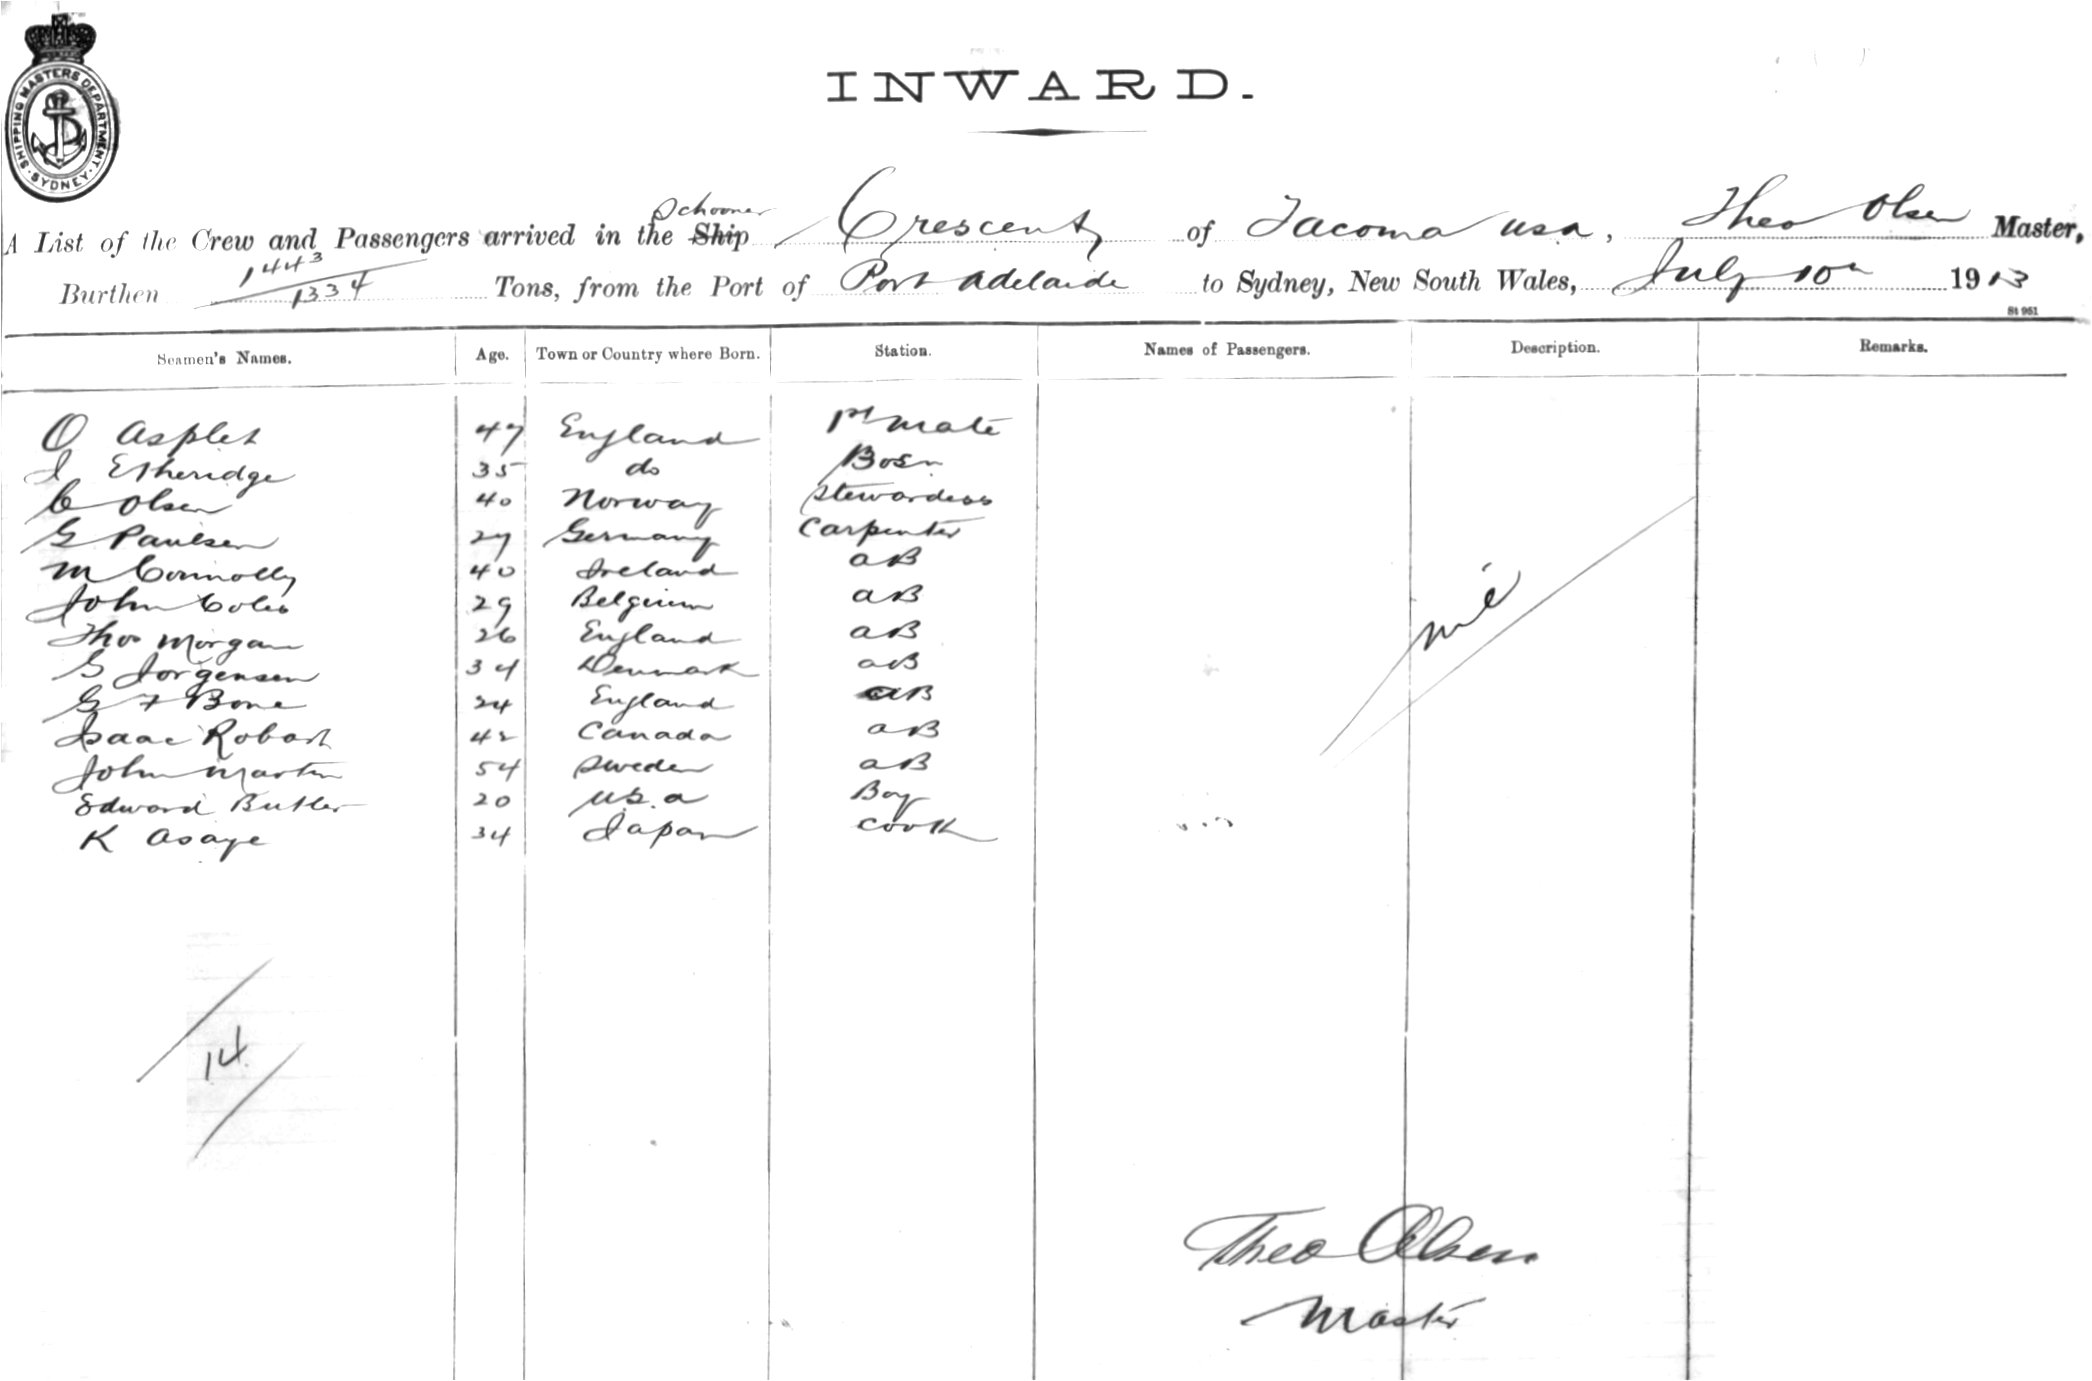 SHIPPING MASTERS DEPARTMENT
SYDNEY
INWARD.
A List of the Crew and Passengers arrived in the Ship Schooner Crescent of Tacoma USA, Theo Olsen Master,
Burthen 1443 / 1334 Tons, from the Port of Port Adelaide to Sydney, New South Wales, July 10th 1913
St 951
Seamen's Names. Age. Town or Country where Born. Station. Names of Passengers. Description. Remarks.
O Asplet 47 England 1st Mate
I Etheridge 35 do Bosn
C Olsen 40 Norway Stewardess
G Paulsen 27 Germany Carpenter
M Connolly 40 Ireland AB
John Coles 29 Belgium AB
Thos Morgan 26 England AB
G Jorgensen 34 Denmark AB
G F Bone 24 England AB
Isaac Robart 42 Canada AB
John Martin 54 Sweden AB
Edward Butler 20 U.S.A Boy
K Asaye 34 Japan Cook
nil
14
Theo Olsen
Master